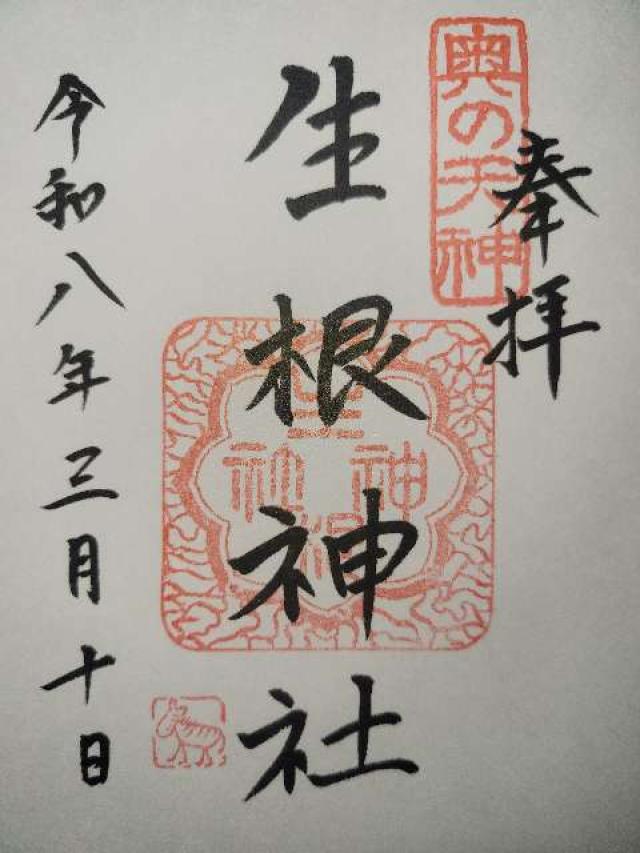 奥の天神
奉拝
生根神社
生根神社
令和八年三月十日